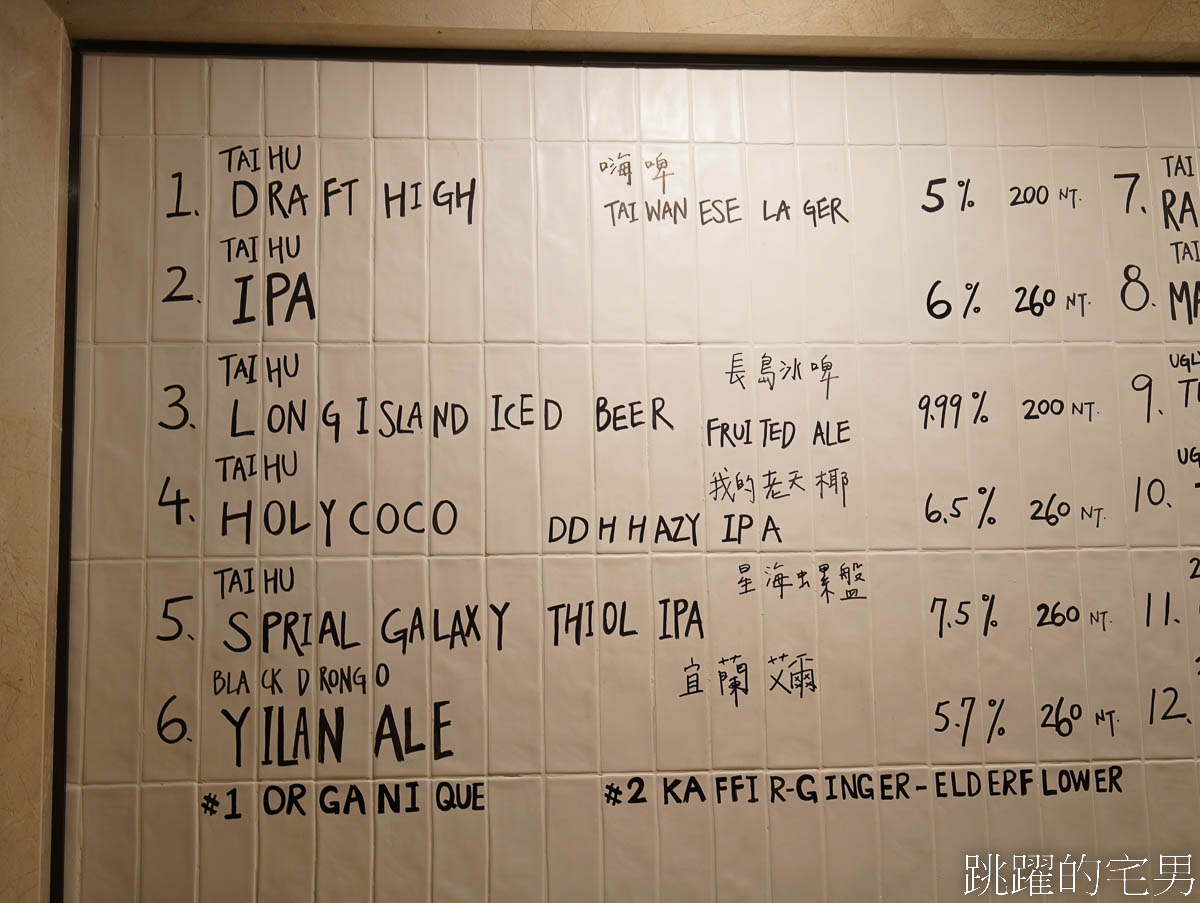 TAIHU
1. DRAFT HIGH 嗨啤 TAIWANESE LAGER 5% 200 NT.
TAIHU
2. IPA 6% 260 NT.
TAIHU
3. LONG ISLAND ICED BEER 長島冰啤 FRUITED ALE 9.99% 200 NT.
TAIHU
4. HOLY COCO 我的老天椰 DDH HAZY IPA 6.5% 260 NT.
TAIHU
5. SPRIAL GALAXY THIOL IPA 星海螺盤 7.5% 260 NT.
BLACK DRONGO
6. YILAN ALE 宜蘭艾爾 5.7% 260 NT.
#1 ORGANIQUE #2 KAFFIR-GINGER-ELDERFLOWER
TAI
7. RA
TAI
8. MA
UGLY
9.
UG
10.
11.
12.
跳躍的宅男